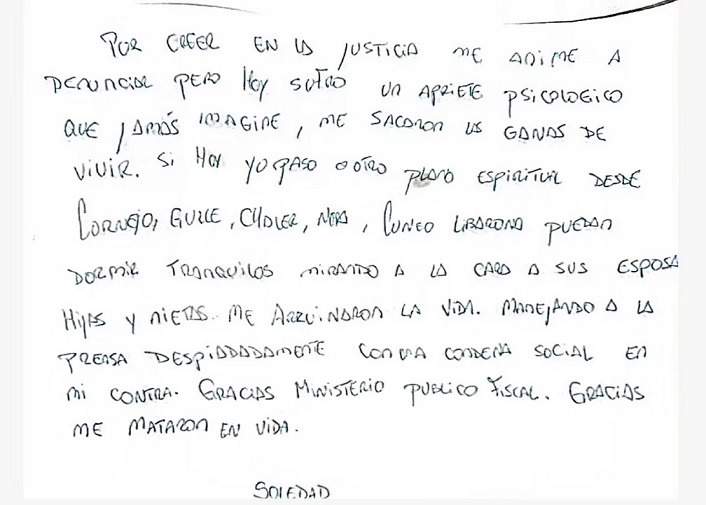 POR CREER EN LA JUSTICIA ME ANIME A
DENUNCIAR PERO HOY SUFRO UN APRIETE PSICOLOGICO
QUE JAMÁS IMAGINE, ME SACARON LAS GANAS DE
VIVIR. SI HOY YO PASO A OTRO PLANO ESPIRITUAL DESDE
CORNEJO, GULLE, CHALER, NERA, CUNEO LIBARONA PUEDAN
DORMIR TRANQUILOS MIRANDO A LA CARA A SUS ESPOSA
HIJAS Y NIETAS. ME ARRUINARON LA VIDA. MANEJANDO A LA
PRENSA DESPIADADAMENTE CON UNA CONDENA SOCIAL EN
MI CONTRA. GRACIAS MINISTERIO PUBLICO FISCAL. GRACIAS
ME MATARON EN VIDA.
SOLEDAD